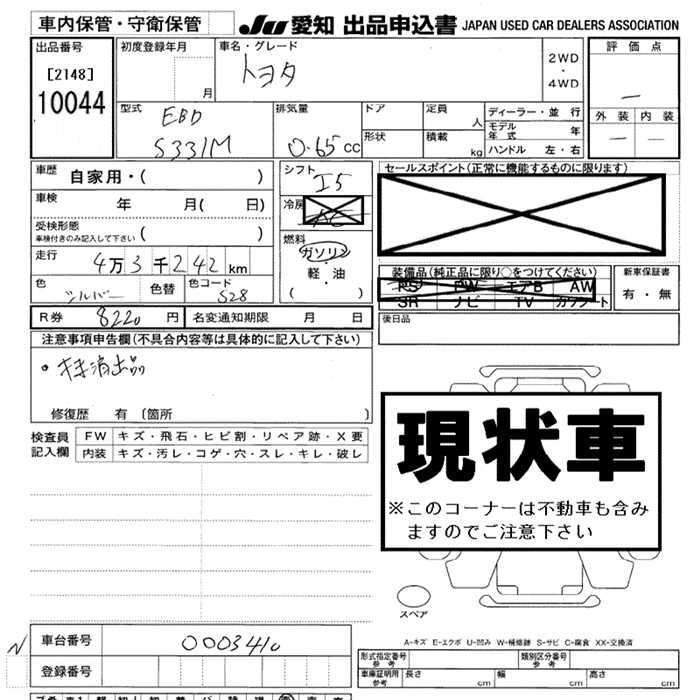 車内保管・守衛保管 JU 愛知 出品申込書 JAPAN USED CAR DEALERS ASSOCIATION
出品番号 初度登録年月 車名・グレード 評価点
[2148] トヨタ 2WD
10044 月 ・ 4WD
外装 内装
型式 EBD 排気量 ドア 定員 人 ディーラー・並行
モデル年式 年
S331M 0.65 cc 形状 積載 kg ハンドル 左・右
車歴 自家用・( ) シフト I5 セールスポイント(正常に機能するものに限ります)
車検 年 月( 日) 冷房 AC
受検形態
車検付きのみ記入して下さい ( ) 燃料 ガソリン
走行 4万3千242km ・ 軽・油 装備品(純正品に限り○をつけてください) 新車保証書
色 シルバー 色替 色コード S28 ( ) PS PW エアB AW 有・無
SR ナビ TV カワシート
R券 8220円 名変通知期限 月 日 後日品
注意事項申告欄(不具合内容等は具体的に記入して下さい)
・抹消出品
修復歴 有 〔箇所 〕
現状車
※このコーナーは不動車も含み
ますのでご注意下さい
検査員 FW キズ・飛石・ヒビ割・リペア跡・X要
記入欄 内装 キズ・汚レ・コゲ・穴・スレ・キレ・破レ
スペア
A-キズ E-エクボ U-凹み W-補修跡 S-サビ C-腐食 XX-交換済
N 車台番号 0003410
登録番号
形式指定番号 参考 類別区分番号 参考
車庫証明用 参考 長さ cm 幅 cm 高さ cm